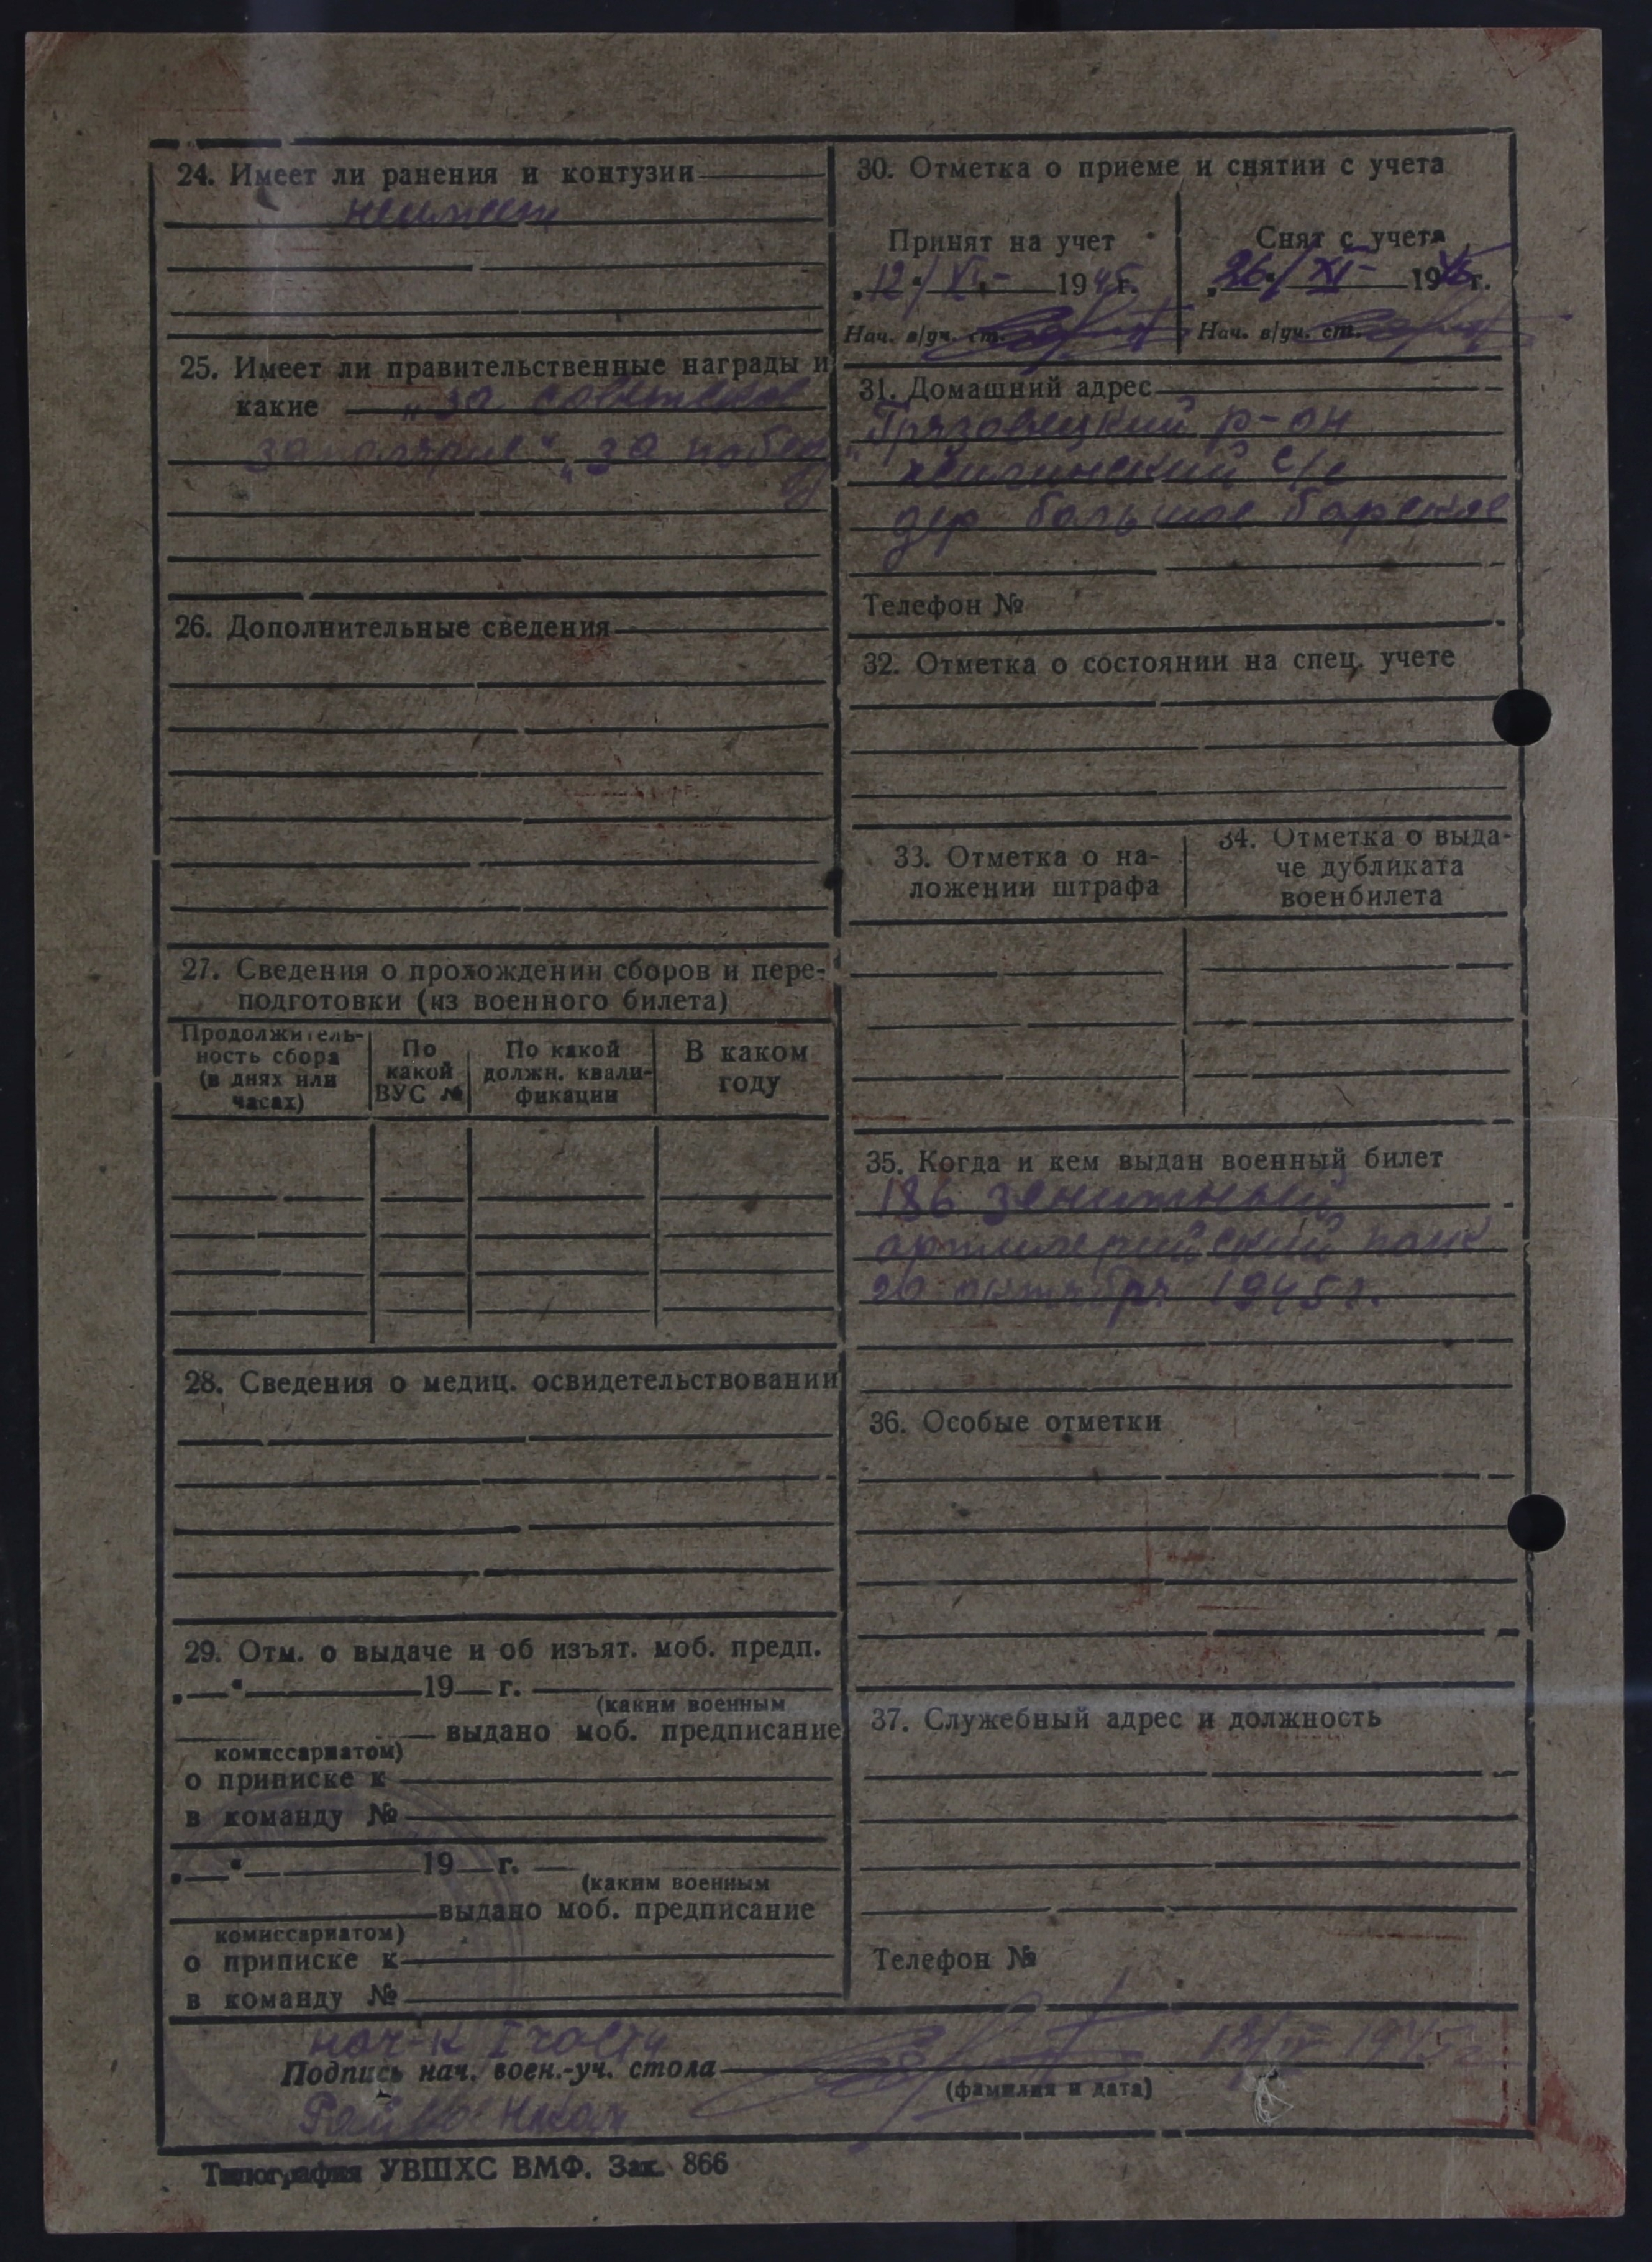 24. Имеет ли ранения и контузии
неимеет
25. Имеет ли правительственные награды и
какие „за советское
заполярие" „за побед
у"
26. Дополнительные сведения
27. Сведения о прохождении сборов и пере-
подготовки (из военного билета)
Продолжитель-
ность сбора
(в днях или
часах)
По
какой
ВУС №
По какой
должн. квали-
фикации
В каком
году
28. Сведения о медиц. освидетельствовании
29. Отм. о выдаче и об изъят. моб. предп.
„ " 19 г.
(каким военным
выдано моб. предписание
комиссариатом)
о приписке к
в команду №
„ " 19 г.
(каким военным
выдано моб. предписание
комиссариатом)
о приписке к
в команду №
30. Отметка о приеме и снятии с учета
Принят на учет
„12" XI- 1945г.
Нач. в/уч. ст.
Снят с учета
„26" XI- 1945г.
Нач. в/уч. ст.
31. Домашний адрес
Грязовецкий р-он
с/с
дер большое барское
Телефон №
32. Отметка о состоянии на спец. учете
33. Отметка о на-
ложении штрафа
34. Отметка о выда-
че дубликата
военбилета
35. Когда и кем выдан военный билет
186 зенитный
артилерийский полк
20 октября 1945г.
36. Особые отметки
37. Служебный адрес и должность
Телефон №
нач-к I части
Подпись нач. воен.-уч. стола
(фамилия и дата)
1945г
Типография УВШХС ВМФ. Зак. 866